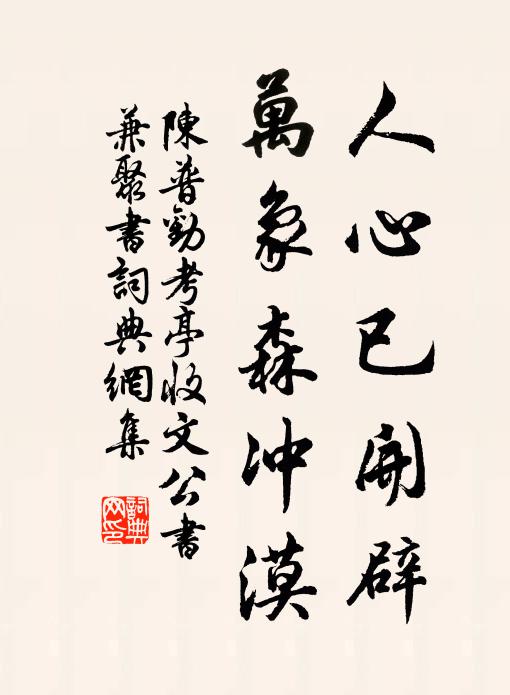 人心已開辟
萬象森沖漠
陳普勸考亭收文公書
兼聚書詞典網集
詞典
网印